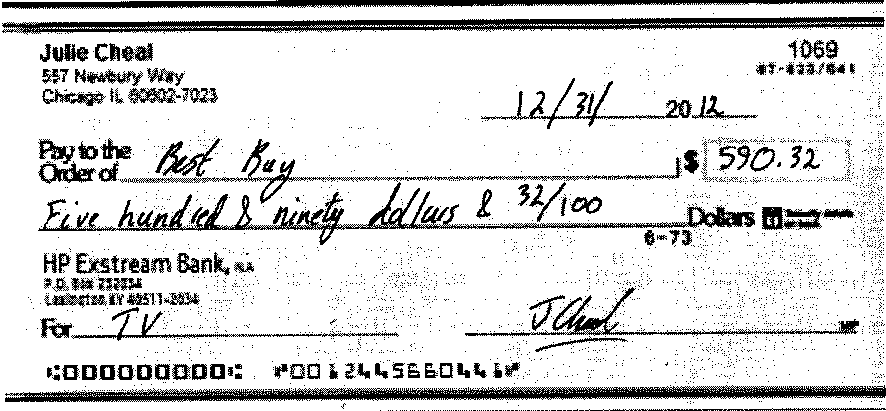 Julie Cheal
1069
557 Newbury Way
Chicago IL 60602-7023
12/31/ 2012
Pay to the
Order of Best Buy $ 590.32
Five hundred & ninety dollars & 32/100 Dollars
6-73
HP Exstream Bank, N.A.
P.O. Box
Lexington KY 40511-2034
For TV J Cheal MP
⑆000000000⑆ ⑈0012445660441⑈